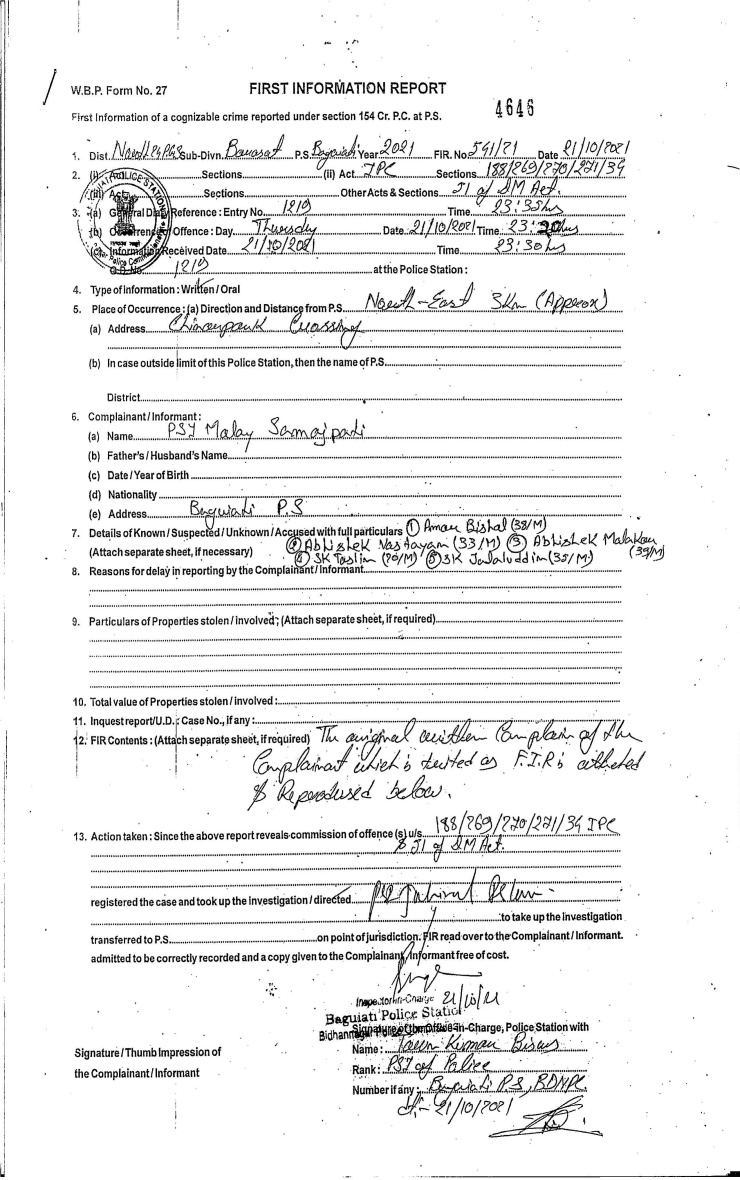 W.B.P. Form No. 27 FIRST INFORMATION REPORT
4646
First Information of a cognizable crime reported under section 154 Cr. P.C. at P.S.
1. Dist. North 24 PGS Sub-Divn. Barasat P.S. Baguiati Year 2021 FIR. No. 591/21 Date 21/10/2021
2. (i) Act Sections (ii) Act IPC Sections 188/269/270/271/34
(iii) Act Sections Other Acts & Sections 51 of DM Act.
3. (a) General Diary Reference : Entry No. 1219 Time 23:35hrs
(b) Occurrence Offence : Day Thursday Date 21/10/2021 Time 23:20hrs
(c) Information Received Date 21/10/2021 Time 23:30hrs
G.D. No. 1219 at the Police Station :
4. Type of Information : Written / Oral
5. Place of Occurrence : (a) Direction and Distance from P.S. North-East 3km (Approx)
(a) Address Chinarpark Crossing
(b) In case outside limit of this Police Station, then the name of P.S.
District
6. Complainant / Informant :
(a) Name PSI Malay Samajpati
(b) Father's / Husband's Name
(c) Date / Year of Birth
(d) Nationality
(e) Address Baguiati P.S
7. Details of Known / Suspected / Unknown / Accused with full particulars ① Aman Bishal (38/M)
(Attach separate sheet, if necessary) ② Abhishek (33/M) ③ Abhishek Malakar (39/M)
④ SK Taslim (20/M) ⑤ SK Jalaluddim (35/M)
8. Reasons for delay in reporting by the Complainant / Informant
9. Particulars of Properties stolen / involved ; (Attach separate sheet, if required)
10. Total value of Properties stolen / involved :
11. Inquest report / U.D. : Case No., if any :
12. FIR Contents : (Attach separate sheet, if required) The original written Complain of the
Complainant which is treted as F.I.R is attched
& Reporodused below.
13. Action taken : Since the above report reveals commission of offence (s) u/s 188/269/270/271/34 IPC
& 51 of DM Act.
registered the case and took up the investigation / directed
to take up the investigation
transferred to P.S. on point of jurisdiction. FIR read over to the Complainant / Informant.
admitted to be correctly recorded and a copy given to the Complainant / Informant free of cost.
Inspector-in-Charge 21/10/21
Baguiati Police Station
Signature of the Officer-in-Charge, Police Station with
Signature / Thumb Impression of
the Complainant / Informant
Name : Kumar Biswas
Rank : PSI of Police
Number if any : Baguiati P.S, BDNPC
Dt- 21/10/2021